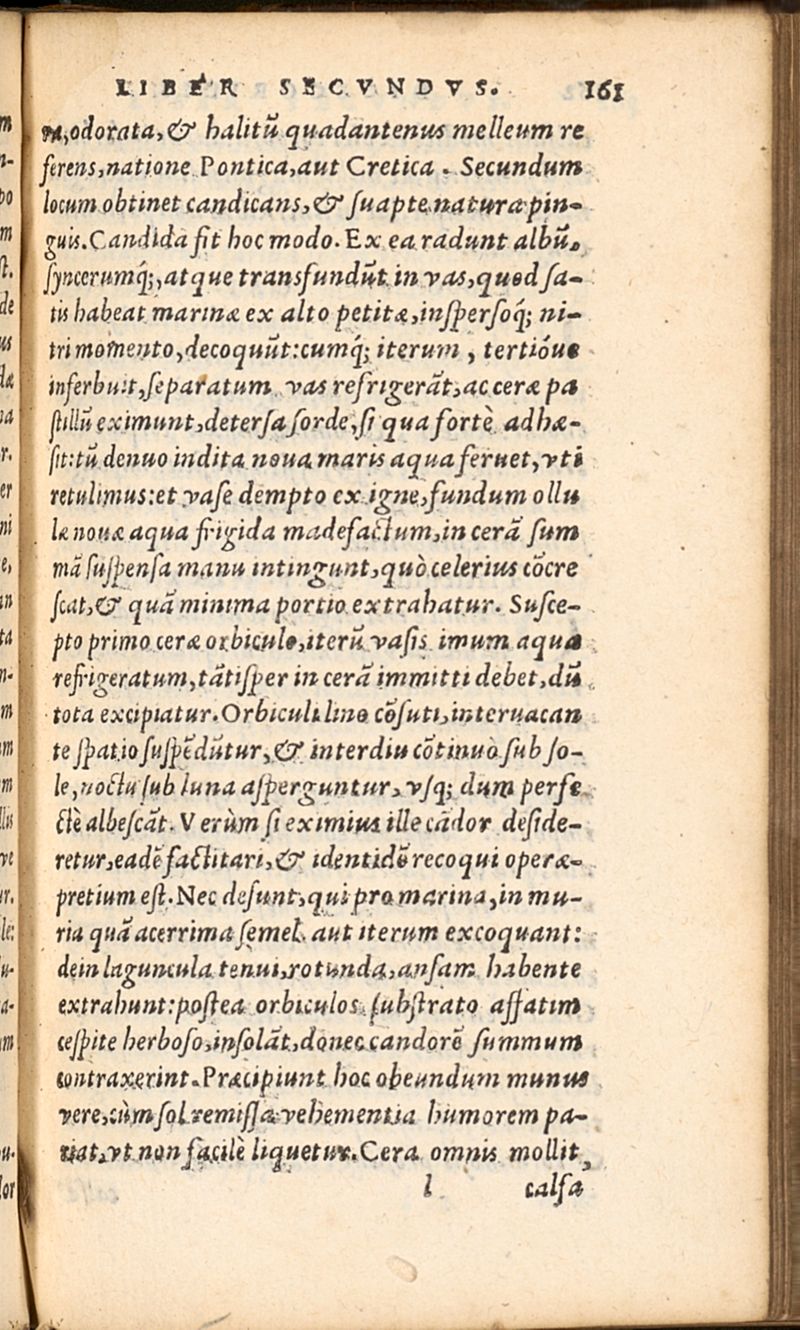 LIBER SECVNDVS. 161
m, odorata, & halitũ quadantenus melleum re
ferens, natione Pontica, aut Cretica. Secundum
locum obtinet candicans, & suapte natura pin-
guis. Candida fit hoc modo. Ex ea radunt albũ,
syncerumq́;, atque transfundũt in vas, quod sa-
tis habeat marinæ ex alto petitæ, inspersoq́; ni-
tri momento, decoquũt: cumq́; iterum, tertióue
inferbuit, separatum vas refrigerãt, ac ceræ pa
stillũ eximunt, detersa sorde, si qua fortè adhæ-
sit: tũ denuo indita noua maris aqua feruet, vti
retulimus: et vase dempto ex igne, fundum ollu
læ nouæ aqua frigida madefactum, in cerã sum
mã suspensa manu intingunt, quò celerius cõcre
scat, & quã minima portio extrahatur. Susce-
pto primo ceræ orbiculo, iterũ vasis imum aqua
refrigeratum, tãtisper in cerã immitti debet, dũ
tota excipiatur. Orbiculi lino cõsuti, interuacan
te spatio suspẽdũtur, & interdiu cõtinuò sub so-
le, noctu sub luna asperguntur, vsq; dum perfe
ctè albescãt. Verùm si eximius ille cãdor deside-
retur, eadẽ factitari, & identidẽ recoqui operæ-
pretium est. Nec desunt, qui pro marina, in mu-
ria quã acerrima semel aut iterum excoquant:
dein laguncula tenui, rotunda, ansam habente
extrahunt: postea orbiculos substrato affatim
cespite herboso, insolãt, donec candorẽ summum
contraxerint. Præcipiunt hoc obeundum munus
vere, cùm sol remissa vehementia humorem pa-
riat, vt non facilè liquetur. Cera omnis mollit,
l calfa